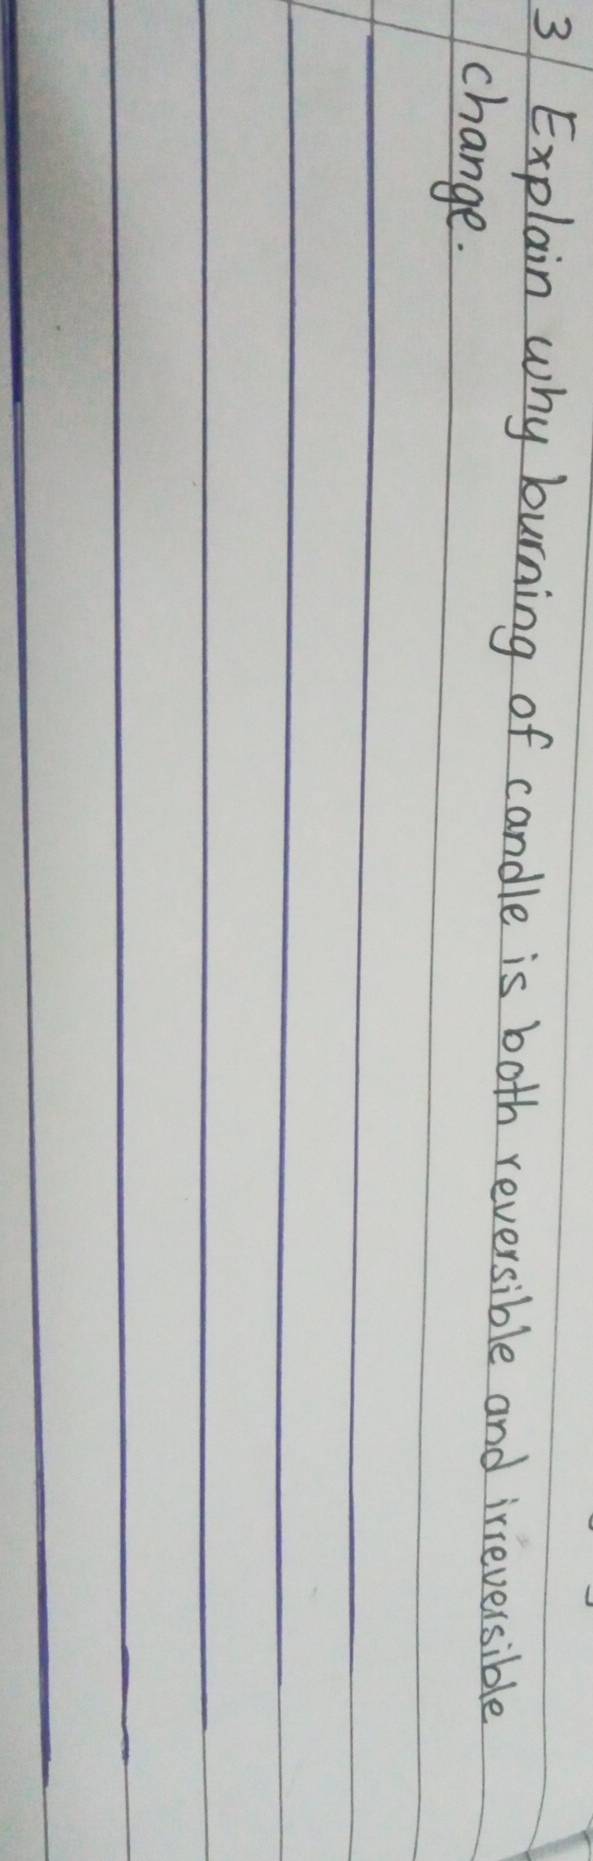 3 Explain why burning of candle is both reversible and irreversible
change.